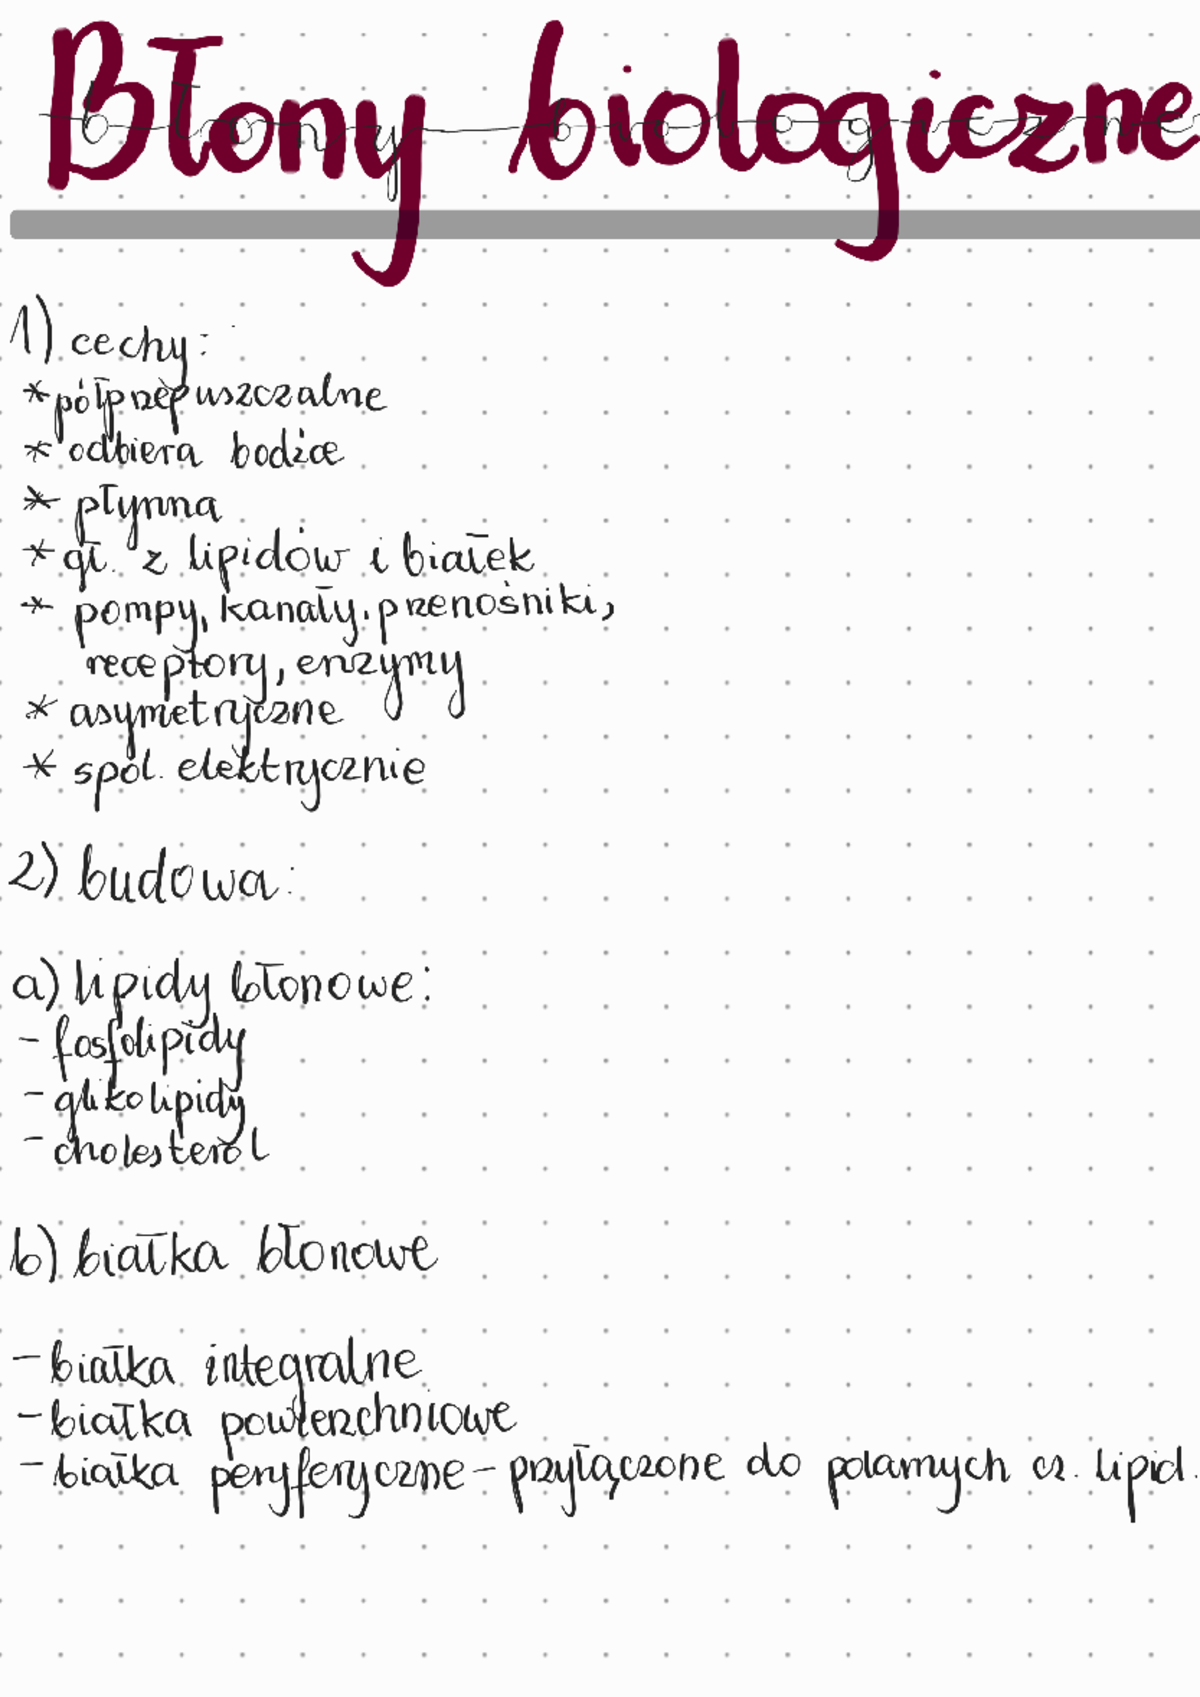 Błony biologiczne
1) cechy:
* półprzepuszczalne
* odbiera bodźce
* płynna
* gł. z lipidów i białek
* pompy, kanały, przenośniki,
receptory, enzymy
* asymetryczne
* spol. elektrycznie
2) budowa:
a) lipidy błonowe:
- fosfolipidy
- glikolipidy
- cholesterol
b) białka błonowe
- białka integralne
- białka powierzchniowe
- białka peryferyczne - przyłączone do polarnych cz. lipid.